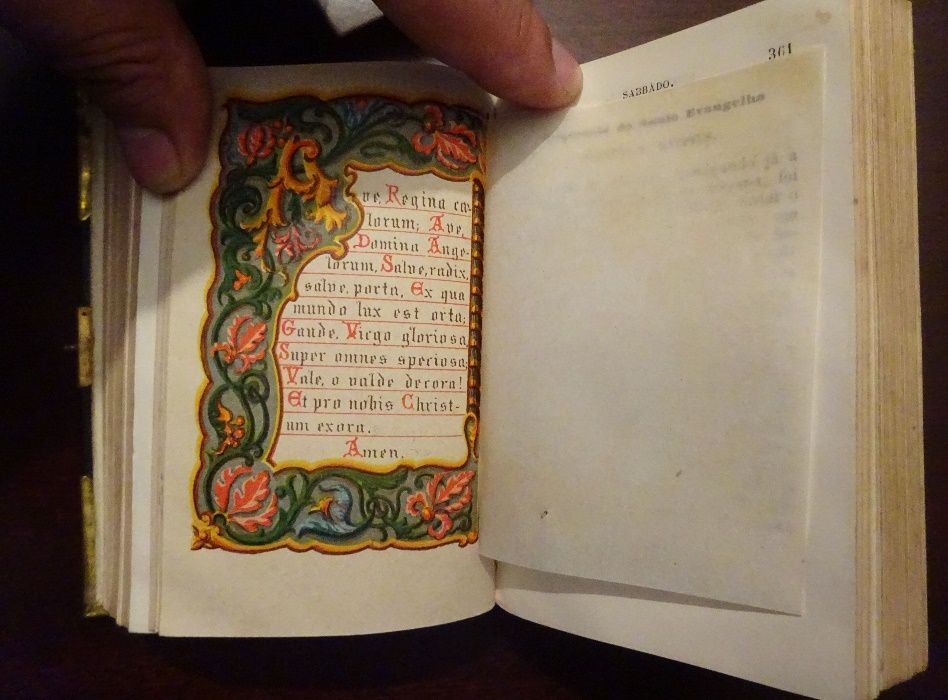 Ave, Regina cœ-
lorum; Ave,
Domina Ange-
lorum, Salve, radix,
salve, porta, Ex qua
mundo lux est orta;
Gaude, Virgo gloriosa,
Super omnes speciosa;
Vale, o valde decora!
Et pro nobis Christ-
um exora.
Amen.
SABBADO.
361
do Santo Evangelho